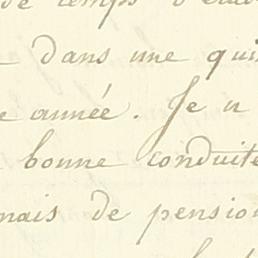 de temps d'
dans une qui
année. Je n
bonne conduite
mais de pension